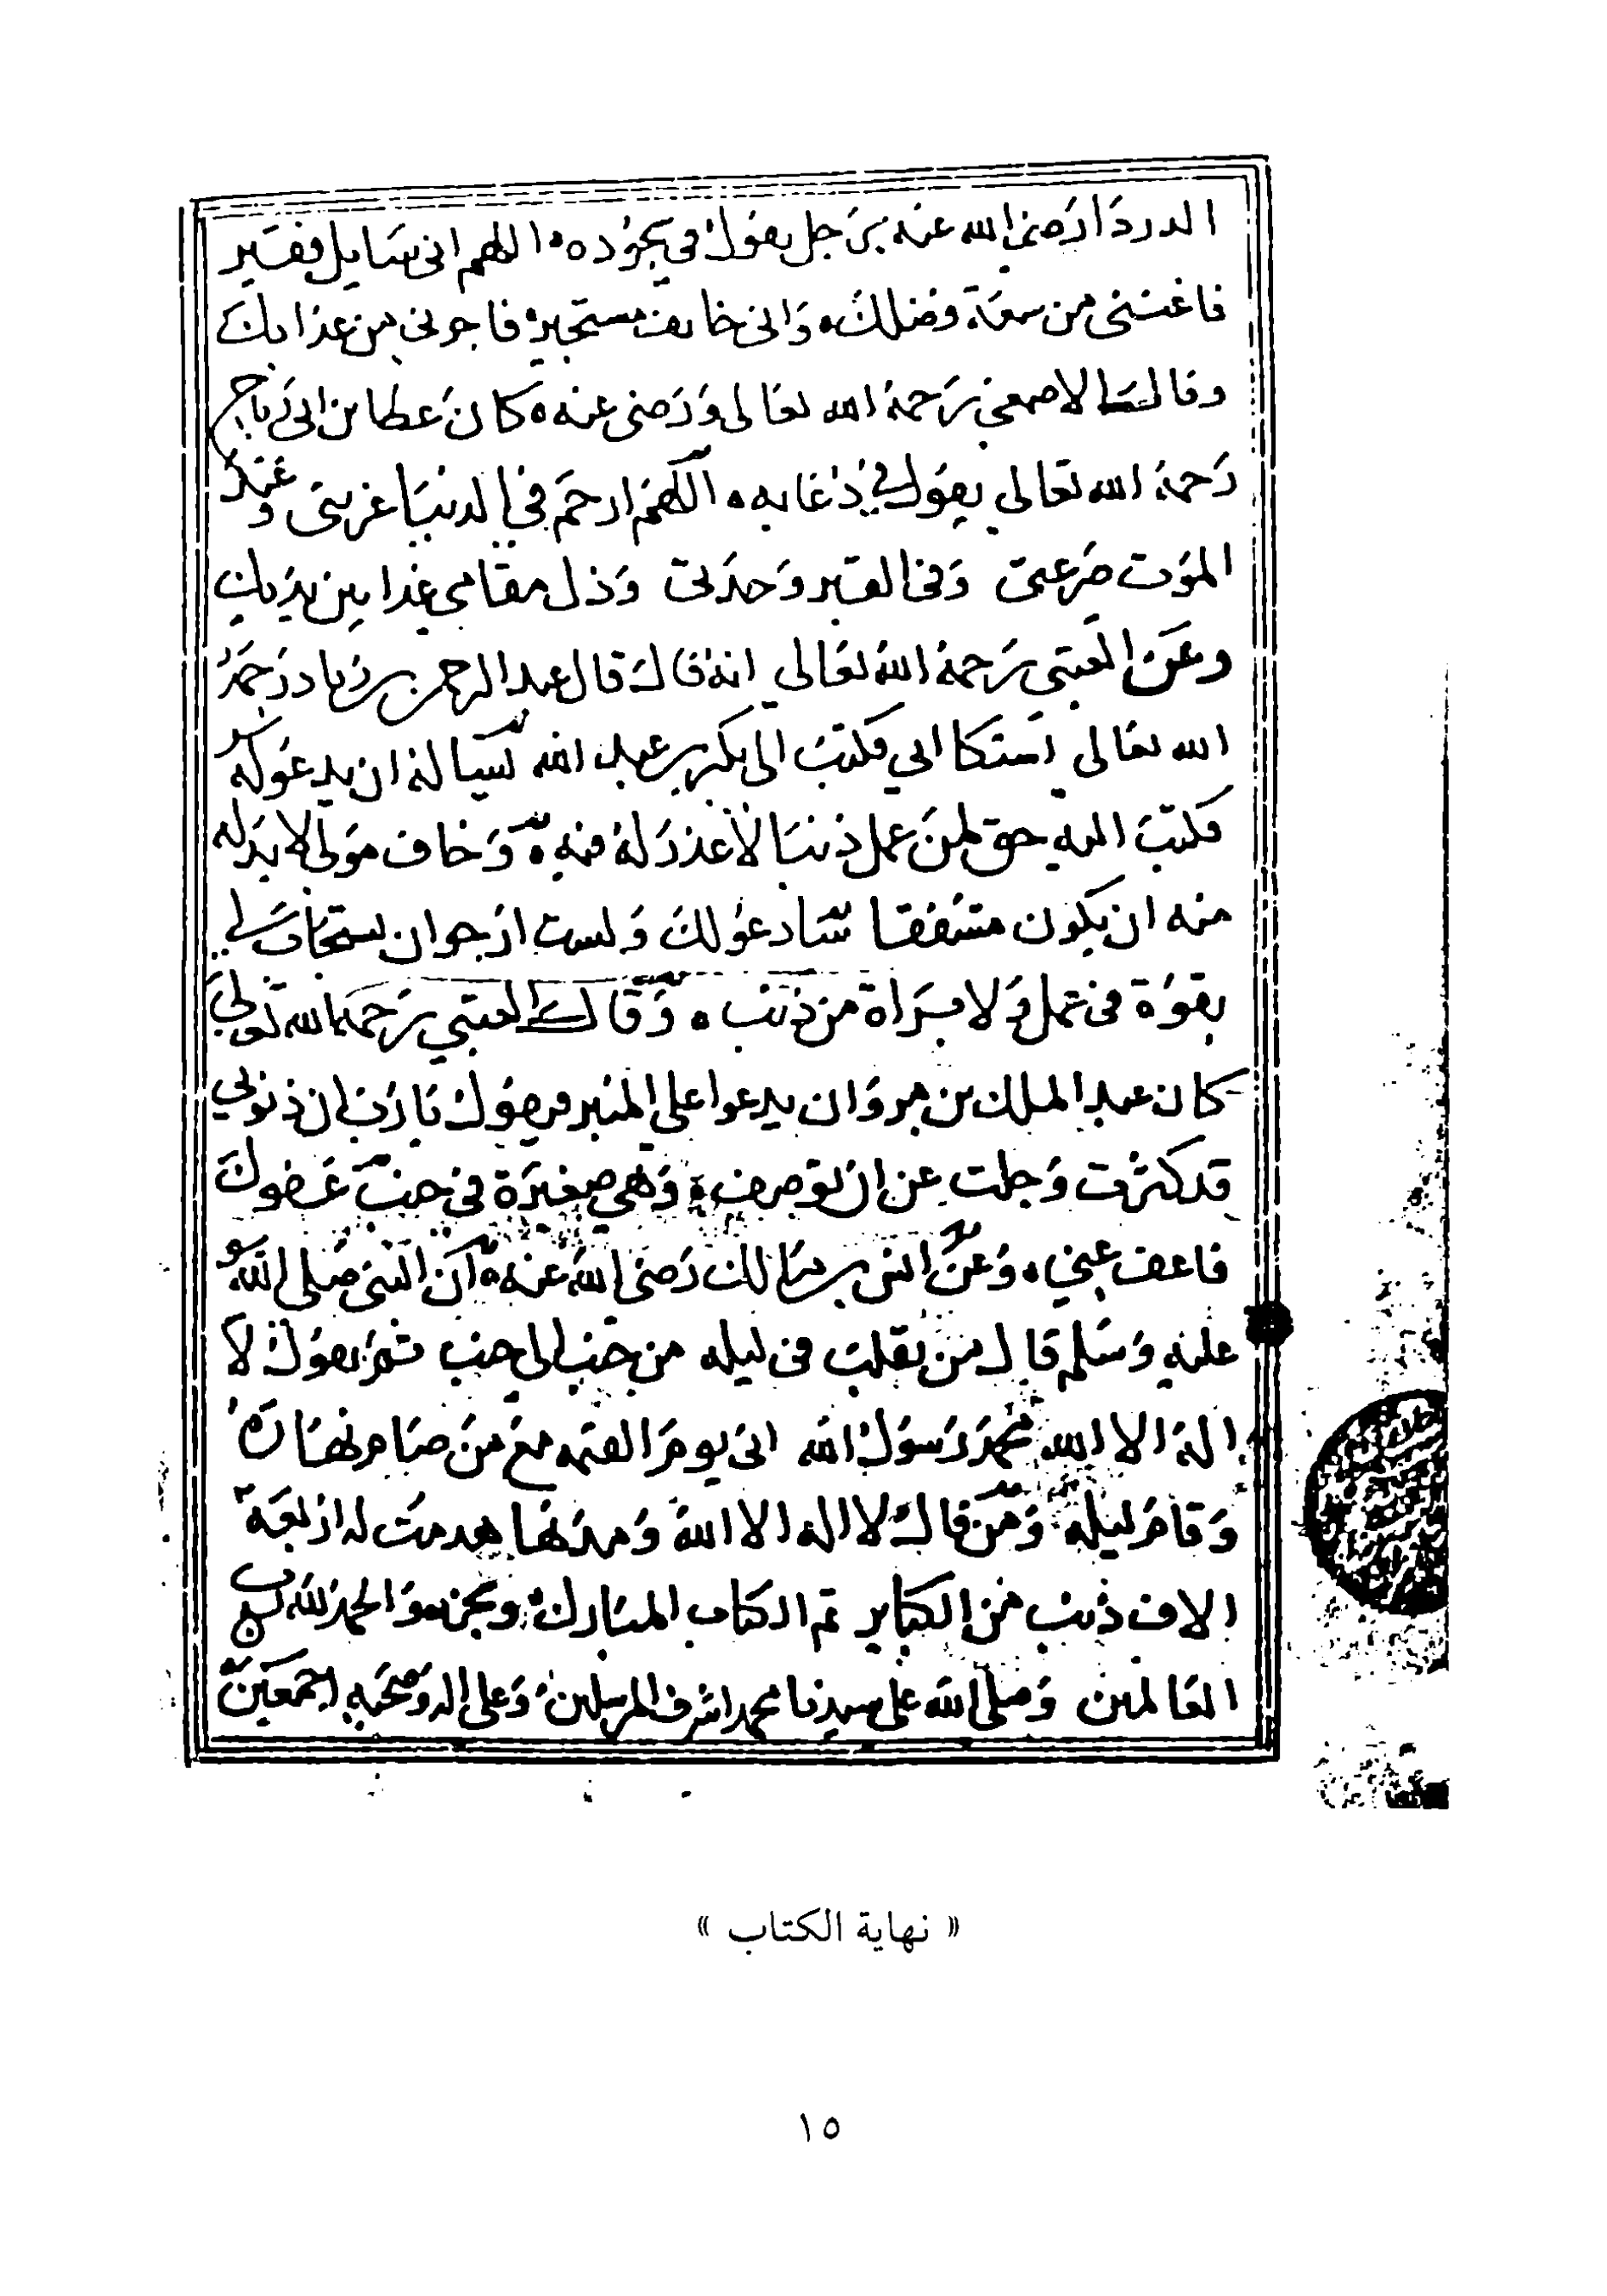 الدردا رضي الله عنه برجل يقول في سجوده اللهم اني سايل فقير
فاغنني من سعة فضلك وَاني خايف مستجير فاجرني من عذابك
وقال الاصمعي رَحمهُ الله تعَالى وَرَضي عنه كانَ عَطا بن ابي رَباح
رَحمهُ الله تعَالي يقوُل في دُعَايه اللهمَ ارحَم في الدنيَا غربتي وَعِند
الموَت صَرعتي وَفي القبر وَحدَتي وَذل مقامي غدا بين يديك
وعَن العتبي رَحمهُ اللهُ تعَالي انهُ قال قال عبد الرحمن بن زياد رَحمَهُ
الله تعَالى اشتكا ابي فكتبَ الى بكر بن عبد الله يسَالهُ ان يدعوُ له
فكتبَ اليه حق لمنَ عمل ذنبَا لاَ عذرَ لهُ فيه وَخاف موَلى لا بدَ له
منه ان يكون مشفقا سَادعوُ لكَ وَلست ارَجوا ان يستجاب لي
بقوُة في عمل وَلا برَاة من ذنب وَقال العتبي رَحمَه الله تعَالى
كان عبد الملك بن مروَان يدعوا على المنبر فيقوُل يا رَب ان ذنوبي
قد كثرُت وَجلت عن ان توصف وَهي صغيرَة في جنب عَفوك
فاعف عني وَعَن انس بن مالك رَضي اللهُ عنه انَ النبي صَلى اللهُ
عليه وَسَلم قال من تقلبَ في ليله من جنب الى جنب ثم يقوُل لاَ
اله الا الله محمد رَسوُل الله اتى يوم القيمه معَ منَ صَام نهَارَهُ
وَقام ليله وَمَن قال لا اله الا اللهُ وَمدَهَا هدمت له ارَبعَة
الاف ذنب من الكبَاير تم الكتاب المبَارك وَالحمد لله رب
العَالمين وَصلى الله على سيدنا محمد اشرف المرسلين وَعلى اله وَصحبَه اجمعَين
« نهاية الكتاب »
١٥